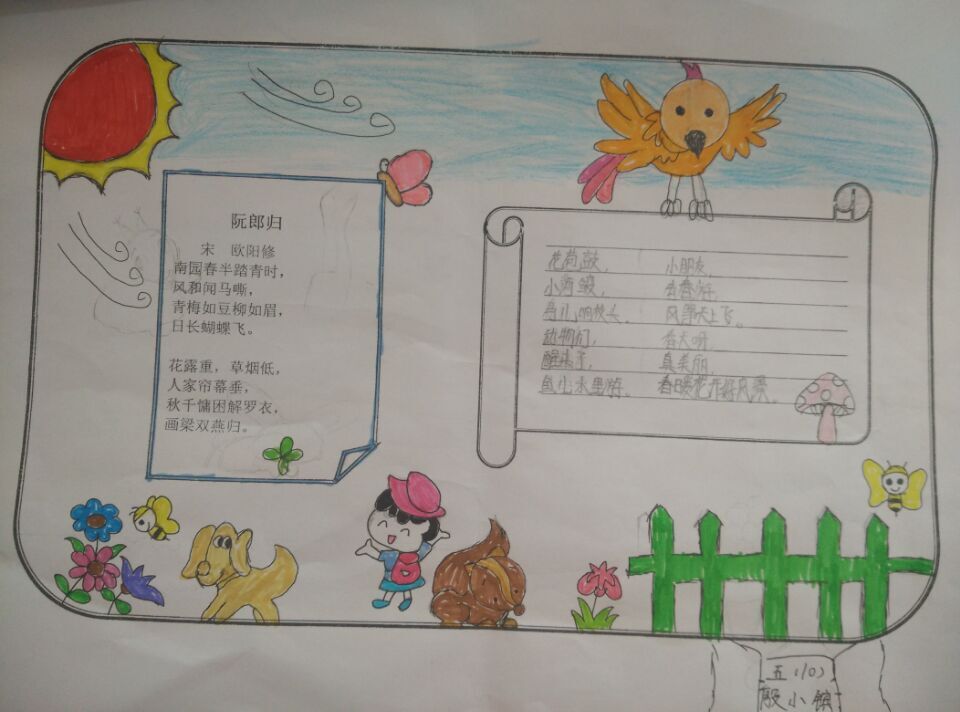 阮郎归
宋 欧阳修
南园春半踏青时，
风和闻马嘶，
青梅如豆柳如眉，
日长蝴蝶飞。
花露重，草烟低，
人家帘幕垂，
秋千慵困解罗衣，
画梁双燕归。
小朋友，
去春游，
鸟儿响枝头，
风筝天上飞。
动物们，
看大呀，
醒来了，
真美丽，
鱼儿水里游，
春日暖花开好风景。
五（10）
殷小